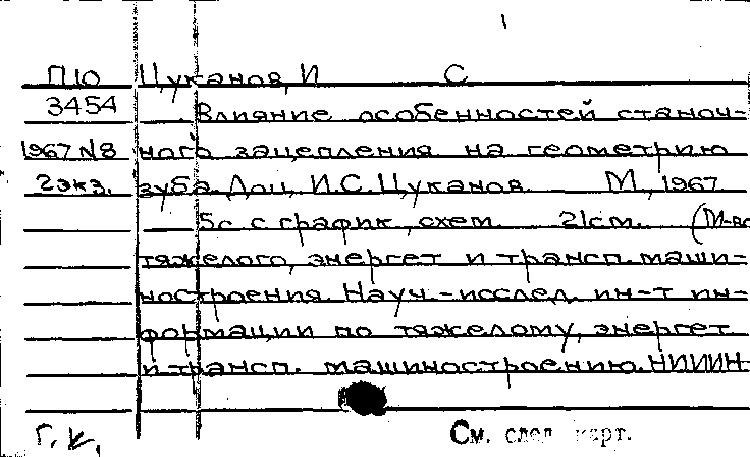 П10 Цуканов, И С
3454 Влияние особенностей станоч-
1967 N8 ного зацепления на геометрию
2 экз. зуба. Доц. И.С. Цуканов. М., 1967.
5с с график, схем. 21см. (М-во
тяжелого, энергет и трансп. маши-
ностроения. Науч.-исслед. ин-т ин-
формации по тяжелому, энергет
и трансп. машиностроению. НИИИН-
Г. К. См. след карт.